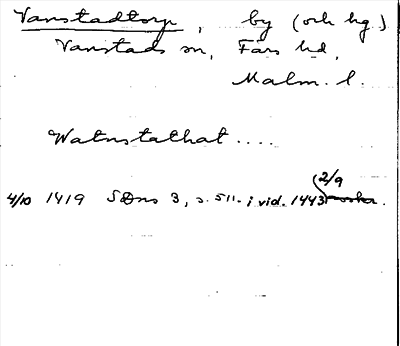 Vanstadtorp, by (och hg.)
Vanstads sn, Färs hd,
Malm. l.
Watnstathat....
(2/9
4/10 1419 SDns 3, s. 511. i vid. 1443.